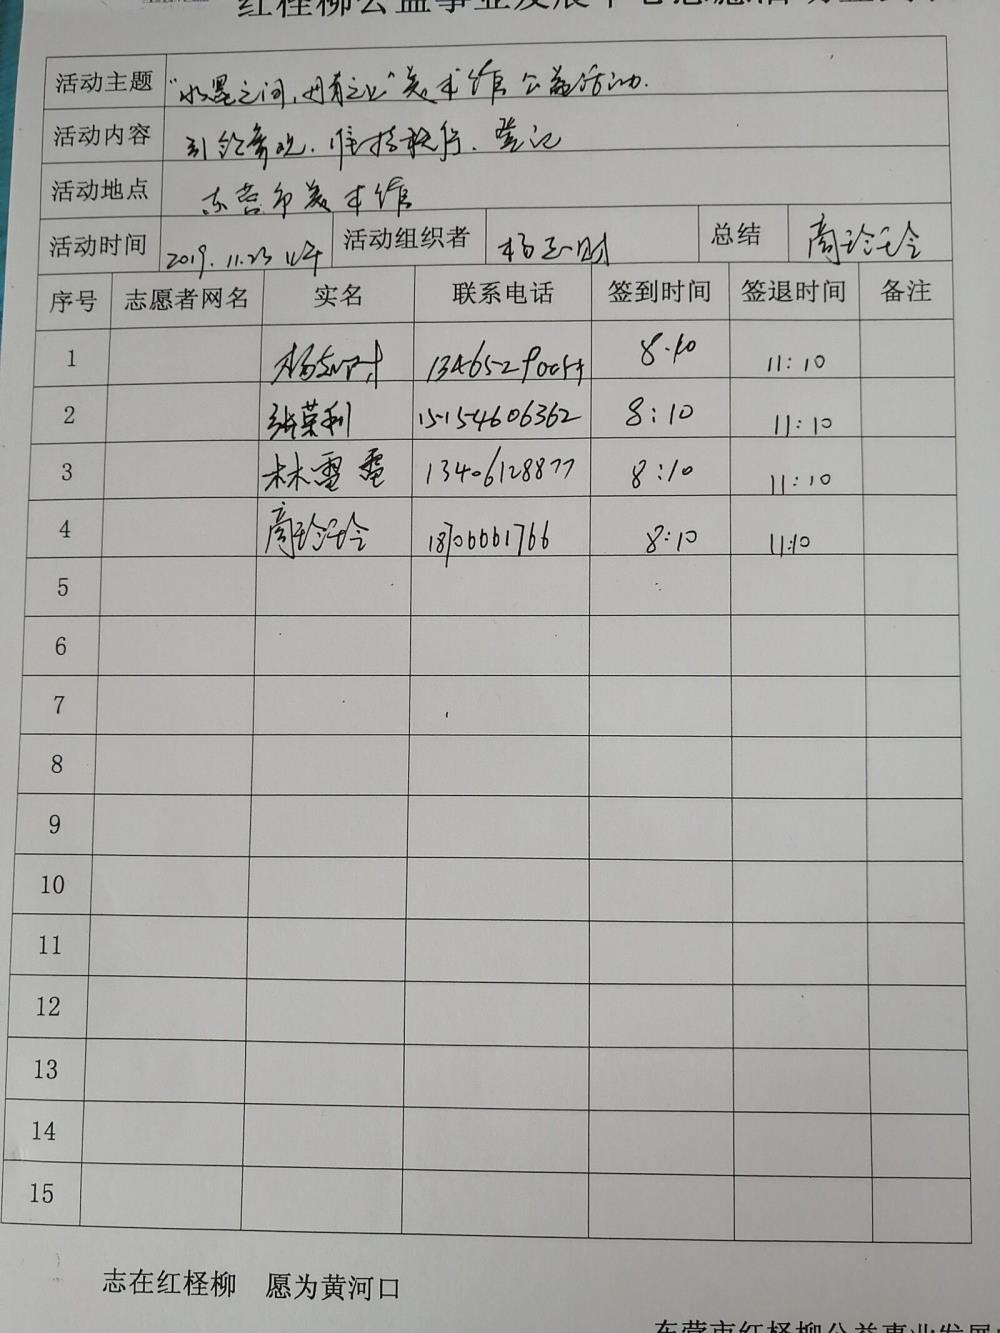 红柽柳公益事业发展中心志愿活动签到表
活动主题 "水墨之间,丹青之上"美术馆公益活动.
活动内容 引领参观、维持秩序、登记
活动地点 东营市美术馆
活动时间 2019.11.23 上午 活动组织者 杨 总结 商玲玲
序号 志愿者网名 实名 联系电话 签到时间 签退时间 备注
1 杨 8:10 11:10
2 张荣利 15154606362 8:10 11:10
3 林雷雷 13406128877 8:10 11:10
4 商玲玲 18706661766 8:10 11:10
5
6
7
8
9
10
11
12
13
14
15
志在红柽柳 愿为黄河口
东营市红柽柳公益事业发展